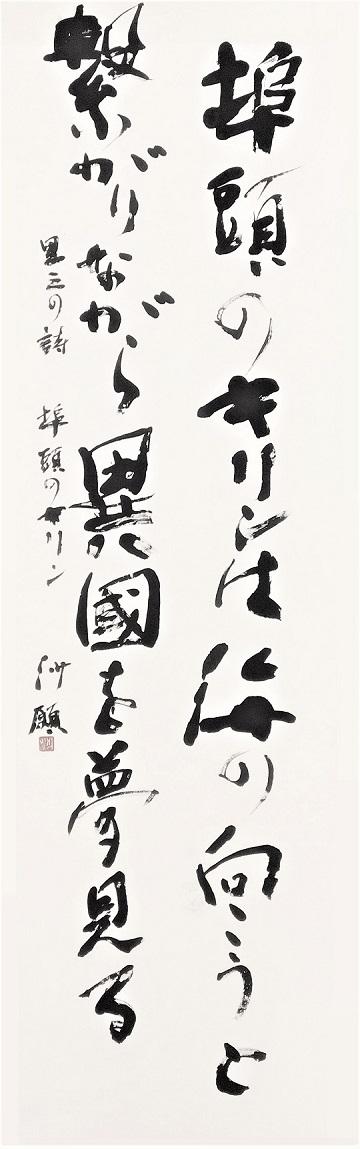 埠頭のキリンは海の向うと
繋がりながら異國を夢見る
里三の詩 埠頭のキリン